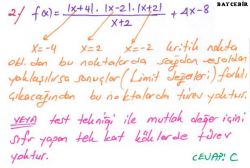 BAYCEBİR
2/ f(x) = |x+4| · |x-2| · |x+2| / x+2 + 4x-8
x=-4 x=2 x=-2 kritik nokta
olduğundan bu noktalarda sağdan ve soldan
yaklaşılırsa sonuçlar (Limit değerleri) farklı
çıkacağından bu noktalarda türev yoktur.
VEYA test tekniği ile mutlak değer içini
sıfır yapan tek kat köklerde türev
yoktur.
CEVAP: C